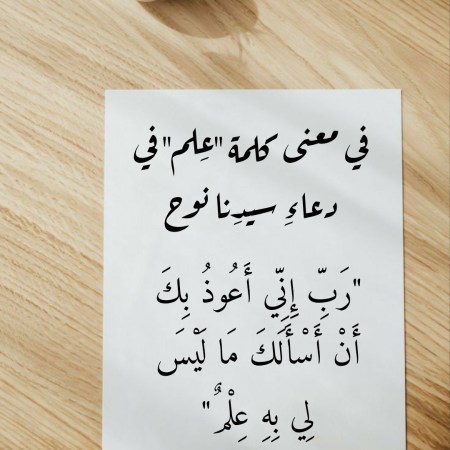 في معنى كلمة "عِلم" في
دعاءِ سيدِنا نوح
"رَبِّ إِنِّي أَعُوذُ بِكَ
أَنْ أَسْأَلَكَ مَا لَيْسَ
لِي بِهِ عِلْمٌ"